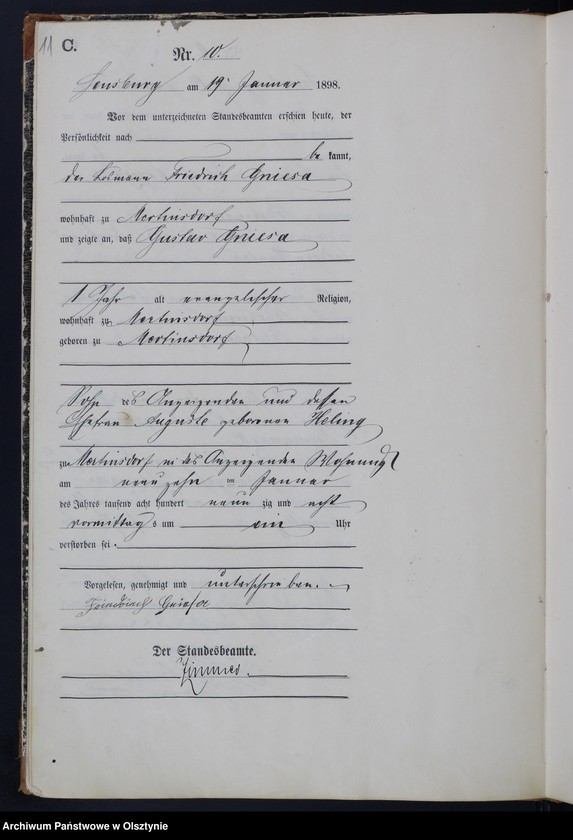 11 C.
Nr. 10.
Sensburg am 19. Januar 1898.
Vor dem unterzeichneten Standesbeamten erschien heute, der
Persönlichkeit nach
be kannt,
der Losmann Friedrich Gniesa
wohnhaft zu Mertinsdorf
und zeigte an, daß Gustav Gniesa
1 Jahr alt evangelischer Religion,
wohnhaft zu Mertinsdorf
geboren zu Mertinsdorf
Sohn des Anzeigenden und dessen
Ehefrau Auguste geborenen Heling
zu Mertinsdorf in des Anzeigenden Wohnung
am neunzehn ten Januar
des Jahres tausend acht hundert neun zig und acht
vormittag s um ein Uhr
verstorben sei.
Vorgelesen, genehmigt und unterschrieben.
Friedrich
Der Standesbeamte.
Archiwum Państwowe w Olsztynie